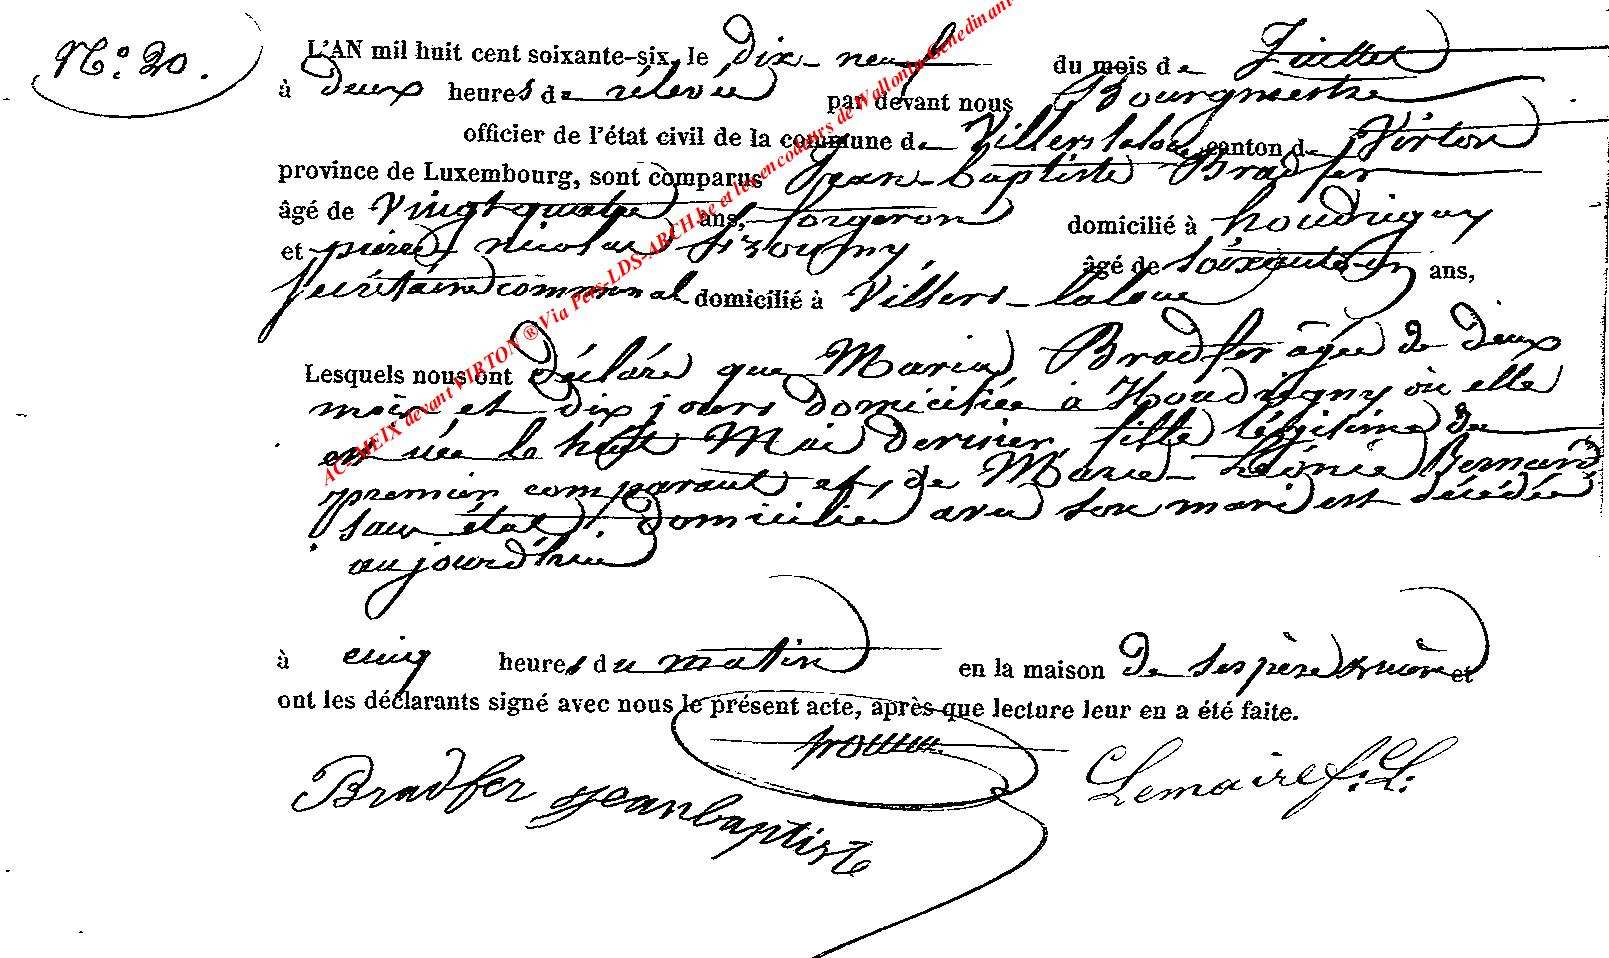 N.º 20.
L'AN mil huit cent soixante-six, le dix-neuf du mois de Juillet
à deux heures de rélevée par devant nous Bourgmestre
officier de l'état civil de la commune de Villers laloue canton de Virton
province de Luxembourg, sont comparus Jean-baptiste Bradfer
âgé de Vingt quatre ans, forgeron domicilié à houdrigny
et pierre nicolas âgé de soixante un ans,
secrétaire communal domicilié à Villers-laloue
Lesquels nous ont déclaré que Maria Bradfer âgée de deux
mois et dix jours domiciliée à Houdrigny où elle
est née le huit Mai dernier, fille légitime du
premier comparant et, de Marie-Léonie Bernard
sans état, domiciliée avec son mari est décédée
aujourd'hui
à cinq heures du matin en la maison de ses père & mère et
ont les déclarants signé avec nous le présent acte, après que lecture leur en a été faite.
Bradfer Jean baptiste
Lemaire f. L.
AC-MEIX devant VIRTON ® Via Pers-LDS-ARCH.be et les encodeurs de Wallonia Genedinant